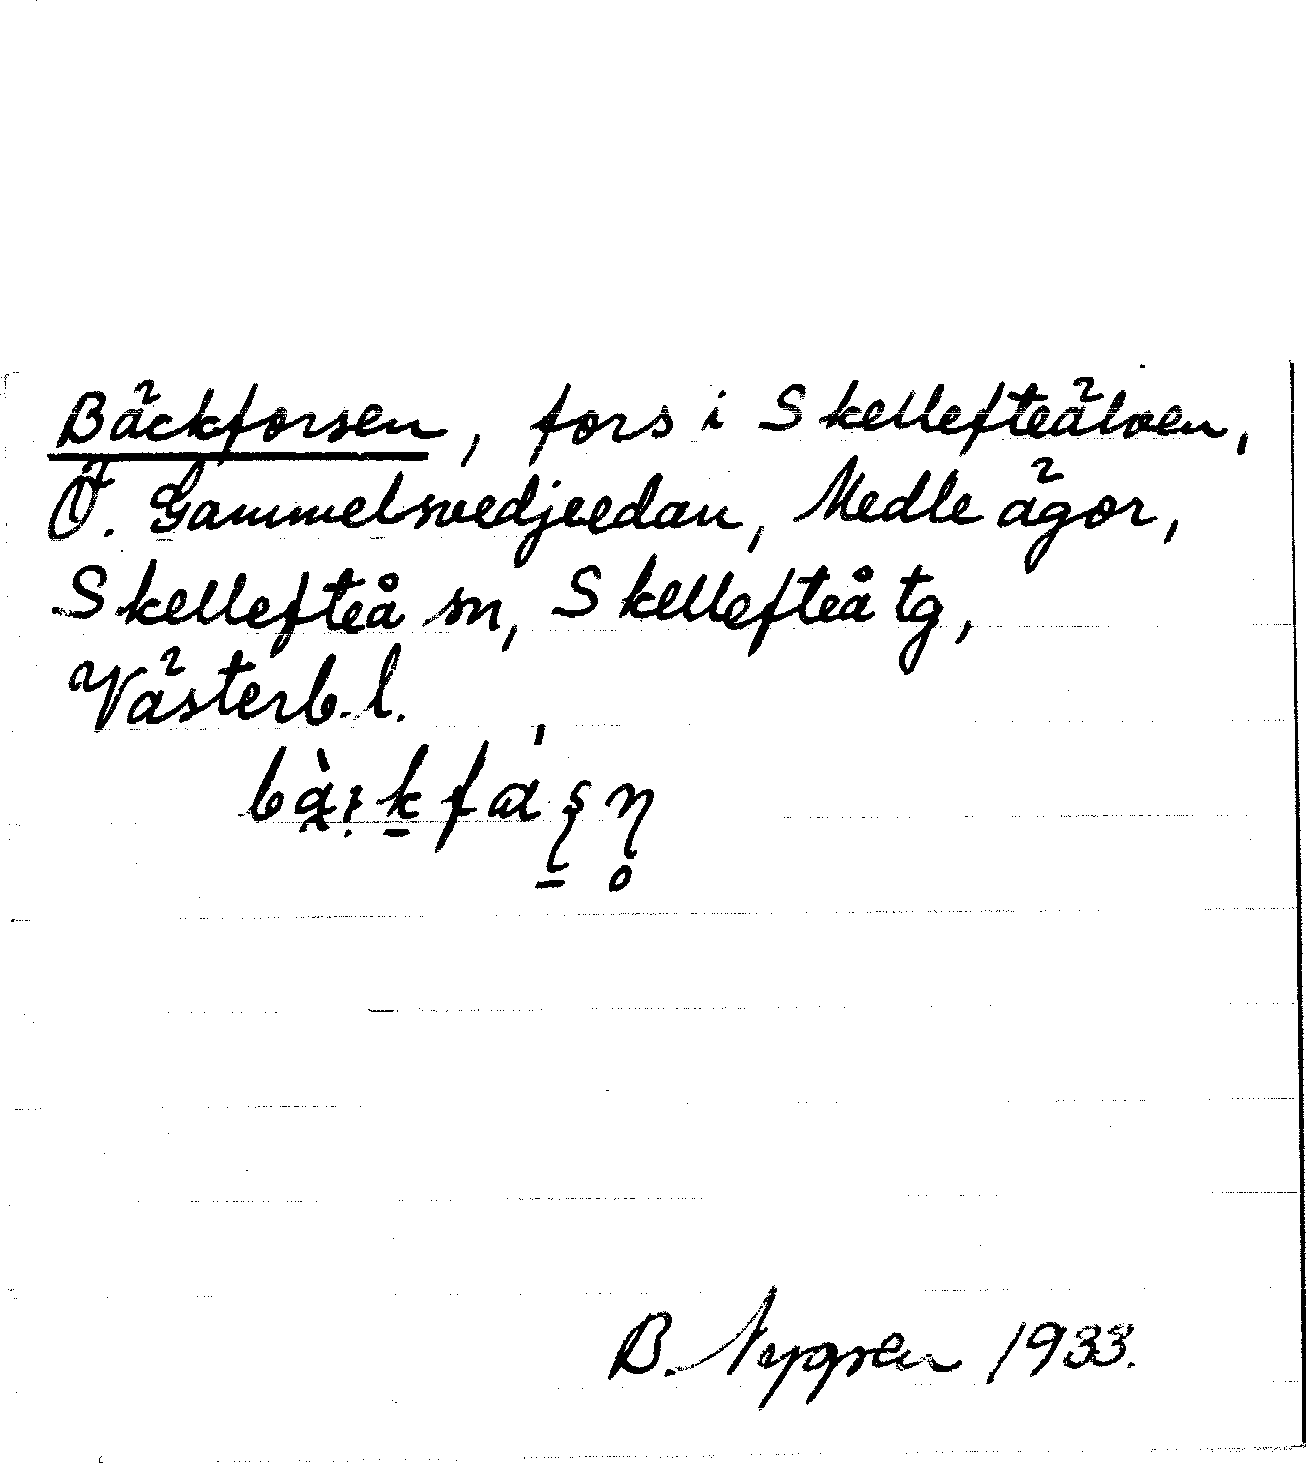 Bäckforsen, fors i Skellefteälven,
Ö. Gammelsvedjeedan, Medle ägor,
Skellefteå sn, Skellefteå tg,
Västerb. l.
B. Nygren 1933.